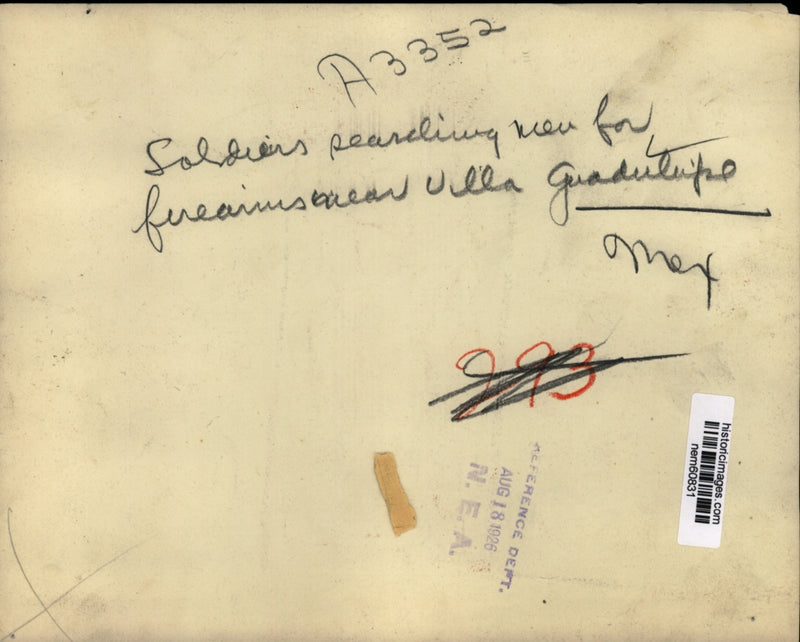 A3352
Soldiers searching men for
firearms near Villa Guadulupe
Mex
993
REFERENCE DEPT.
AUG 18 1926
N. E. A.
historicimages.com
nem60831